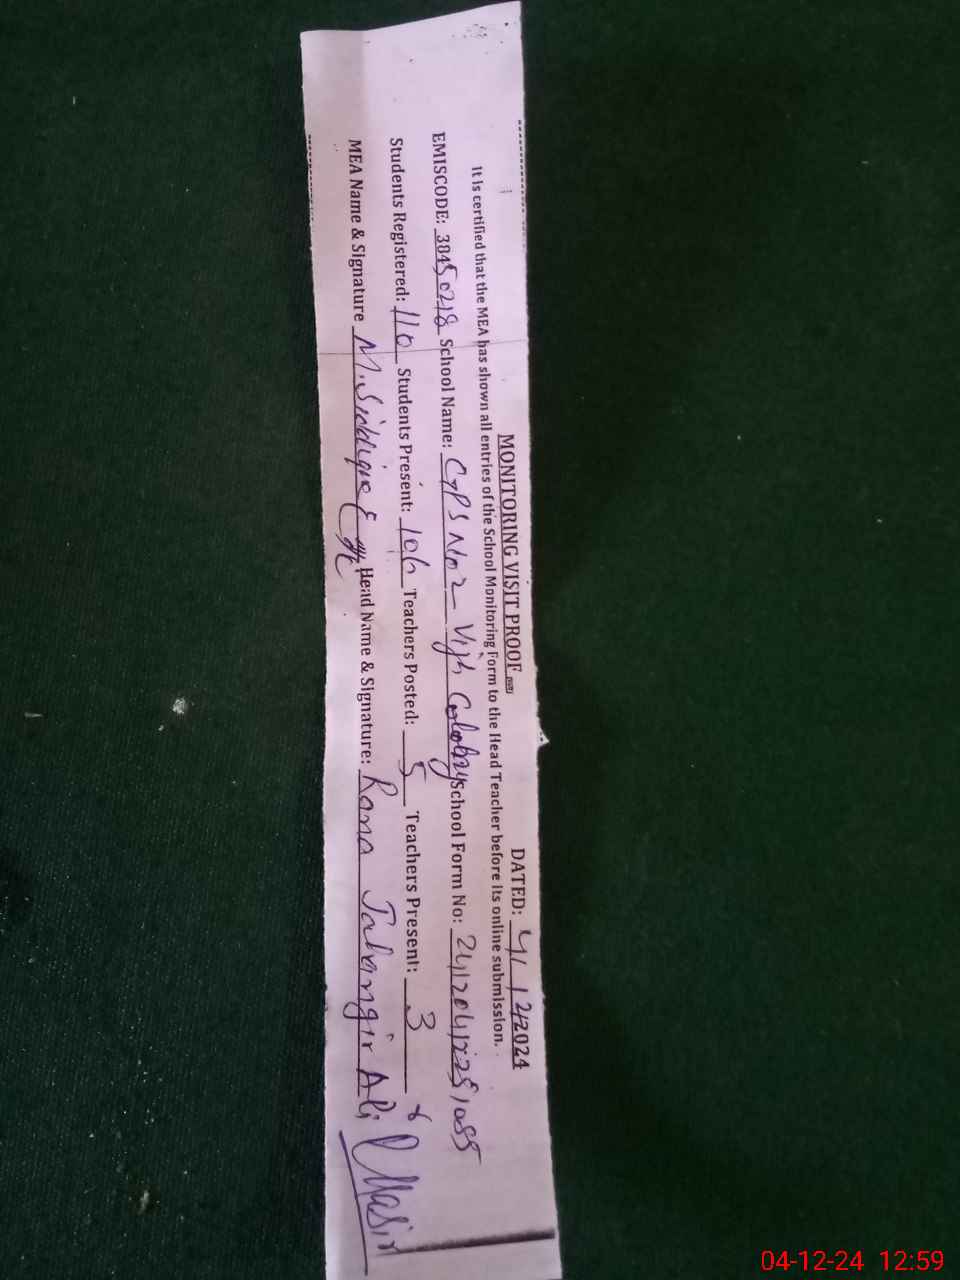 MONITORING VISIT PROOF DATED: 4/12/2024
It is certified that the MEA has shown all entries of the School Monitoring Form to the Head Teacher before its online submission.
EMISCODE: 38450218 School Name: GPS No 2 Vijh Colony School Form No:
Students Registered: 110 Students Present: 106 Teachers Posted: 5 Teachers Present: 3
MEA Name & Signature M. Siddique Head Name & Signature: Rana Jahangir Ali
04-12-24 12:59